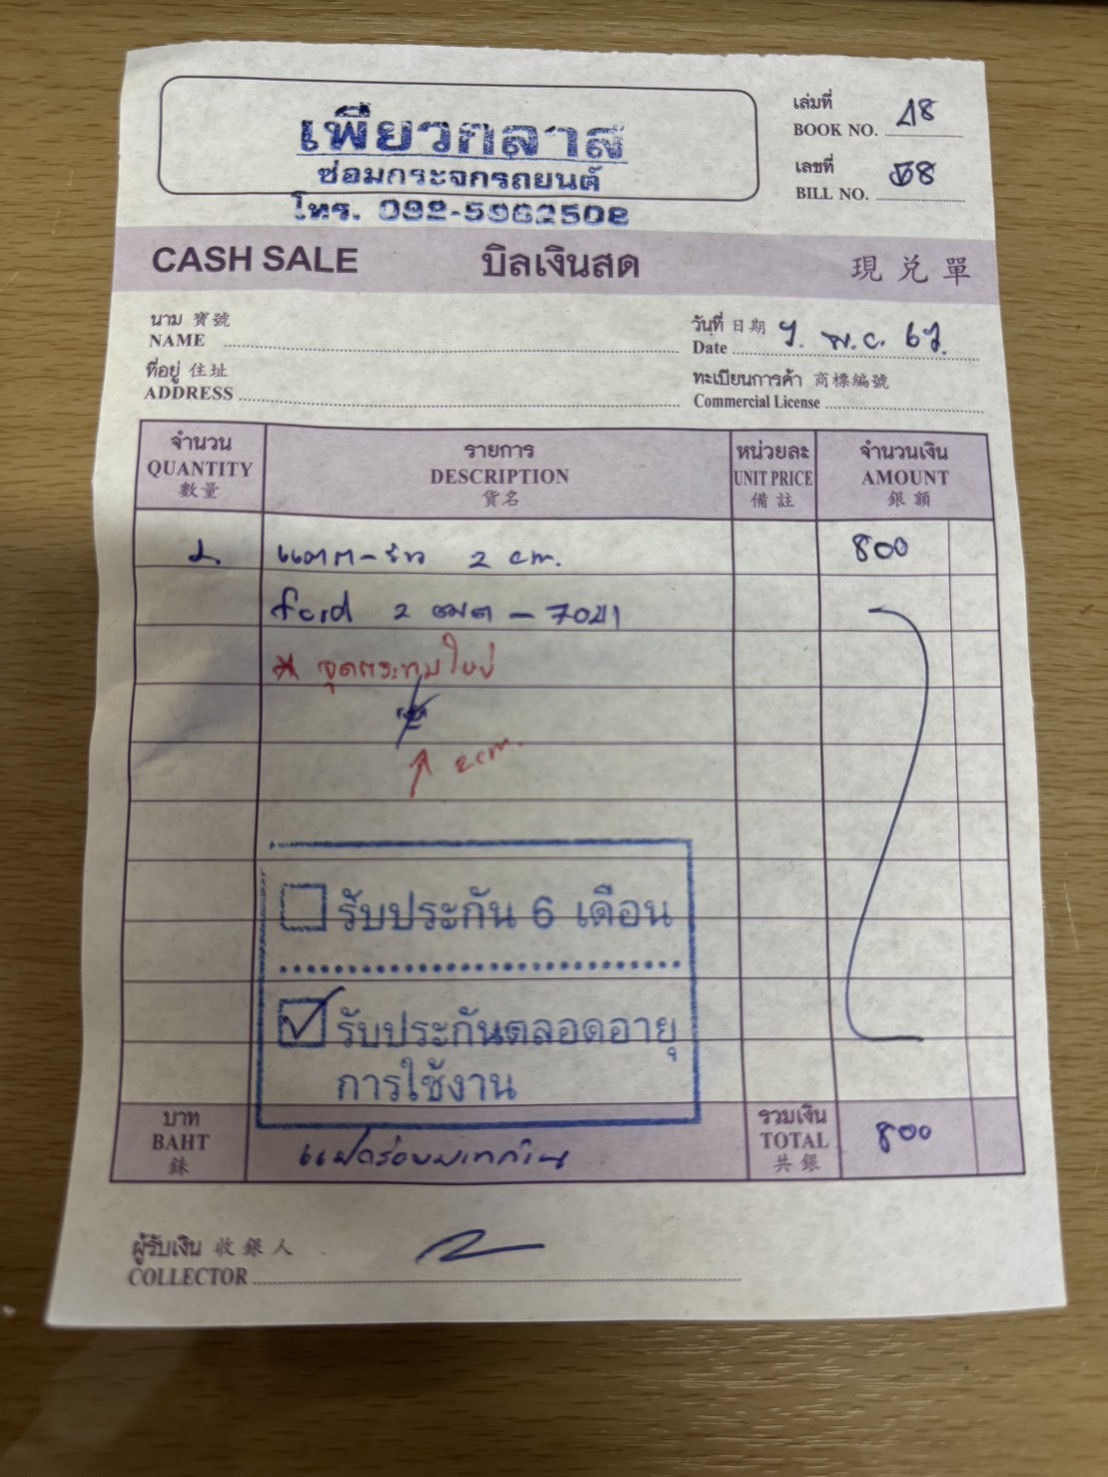 เพียวกลาส
ซ่อมกระจกรถยนต์
โทร. 092-5962502
เล่มที่
BOOK NO. 18
เลขที่
BILL NO. 8
CASH SALE บิลเงินสด 現兌單
นาม 寶號
NAME
วันที่ 日期
Date 9. พ.ค. 67.
ที่อยู่ 住址
ADDRESS
ทะเบียนการค้า 商標編號
Commercial License
จำนวน รายการ หน่วยละ จำนวนเงิน
QUANTITY DESCRIPTION UNIT PRICE AMOUNT
數量 貨名 備註 銀額
1 แตก-ร้าว 2 cm. 800
ford 2 ฒต - 7041
* จุดกระทบใหญ่
2cm.
รับประกัน 6 เดือน
รับประกันตลอดอายุ
การใช้งาน
บาท
BAHT
銖
แปดร้อยบาทถ้วน
รวมเงิน
TOTAL 800
共銀
ผู้รับเงิน 收銀人
COLLECTOR